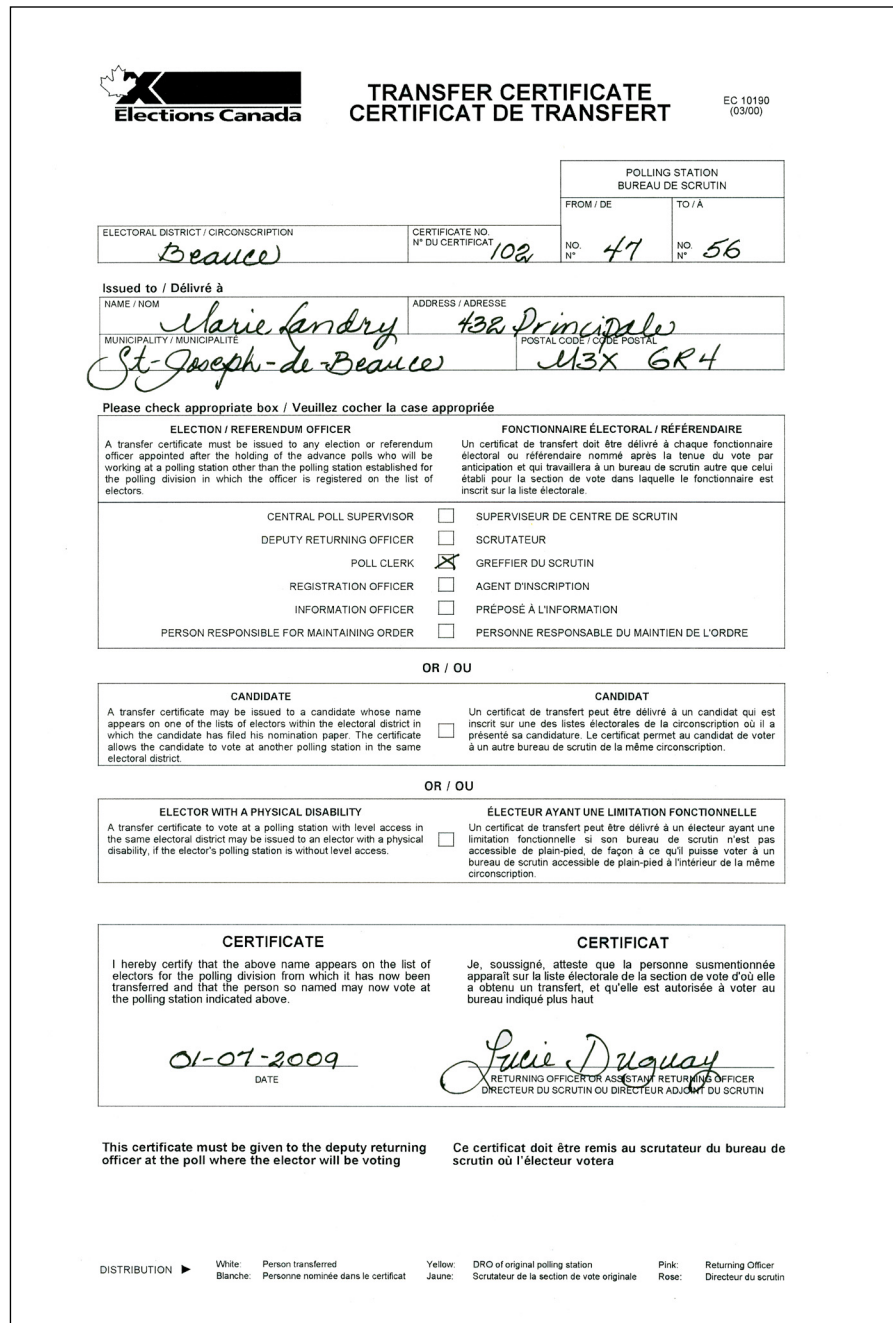 Elections Canada
TRANSFER CERTIFICATE
CERTIFICAT DE TRANSFERT
EC 10190
(03/00)
POLLING STATION
BUREAU DE SCRUTIN
FROM / DE
TO / À
ELECTORAL DISTRICT / CIRCONSCRIPTION
Beauce
CERTIFICATE NO.
N° DU CERTIFICAT 102
NO.
N° 47
NO.
N° 56
Issued to / Délivré à
NAME / NOM
Marie Landry
ADDRESS / ADRESSE
432 Principale
MUNICIPALITY / MUNICIPALITÉ
St-Joseph-de-Beauce
POSTAL CODE / CODE POSTAL
M3X 6R4
Please check appropriate box / Veuillez cocher la case appropriée
ELECTION / REFERENDUM OFFICER
A transfer certificate must be issued to any election or referendum
officer appointed after the holding of the advance polls who will be
working at a polling station other than the polling station established for
the polling division in which the officer is registered on the list of
electors.
FONCTIONNAIRE ÉLECTORAL / RÉFÉRENDAIRE
Un certificat de transfert doit être délivré à chaque fonctionnaire
électoral ou référendaire nommé après la tenue du vote par
anticipation et qui travaillera à un bureau de scrutin autre que celui
établi pour la section de vote dans laquelle le fonctionnaire est
inscrit sur la liste électorale.
CENTRAL POLL SUPERVISOR SUPERVISEUR DE CENTRE DE SCRUTIN
DEPUTY RETURNING OFFICER SCRUTATEUR
POLL CLERK X GREFFIER DU SCRUTIN
REGISTRATION OFFICER AGENT D'INSCRIPTION
INFORMATION OFFICER PRÉPOSÉ À L'INFORMATION
PERSON RESPONSIBLE FOR MAINTAINING ORDER PERSONNE RESPONSABLE DU MAINTIEN DE L'ORDRE
OR / OU
CANDIDATE
A transfer certificate may be issued to a candidate whose name
appears on one of the lists of electors within the electoral district in
which the candidate has filed his nomination paper. The certificate
allows the candidate to vote at another polling station in the same
electoral district.
CANDIDAT
Un certificat de transfert peut être délivré à un candidat qui est
inscrit sur une des listes électorales de la circonscription où il a
présenté sa candidature. Le certificat permet au candidat de voter
à un autre bureau de scrutin de la même circonscription.
OR / OU
ELECTOR WITH A PHYSICAL DISABILITY
A transfer certificate to vote at a polling station with level access in
the same electoral district may be issued to an elector with a physical
disability, if the elector's polling station is without level access.
ÉLECTEUR AYANT UNE LIMITATION FONCTIONNELLE
Un certificat de transfert peut être délivré à un électeur ayant une
limitation fonctionnelle si son bureau de scrutin n'est pas
accessible de plain-pied, de façon à ce qu'il puisse voter à un
bureau de scrutin accessible de plain-pied à l'intérieur de la même
circonscription.
CERTIFICATE
I hereby certify that the above name appears on the list of
electors for the polling division from which it has now been
transferred and that the person so named may now vote at
the polling station indicated above.
01-07-2009
DATE
CERTIFICAT
Je, soussigné, atteste que la personne susmentionnée
apparaît sur la liste électorale de la section de vote d'où elle
a obtenu un transfert, et qu'elle est autorisée à voter au
bureau indiqué plus haut
Lucie Duguay
RETURNING OFFICER OR ASSISTANT RETURNING OFFICER
DIRECTEUR DU SCRUTIN OU DIRECTEUR ADJOINT DU SCRUTIN
This certificate must be given to the deputy returning
officer at the poll where the elector will be voting
Ce certificat doit être remis au scrutateur du bureau de
scrutin où l'électeur votera
DISTRIBUTION ►
White: Person transferred
Blanche: Personne nominée dans le certificat
Yellow: DRO of original polling station
Jaune: Scrutateur de la section de vote originale
Pink: Returning Officer
Rose: Directeur du scrutin